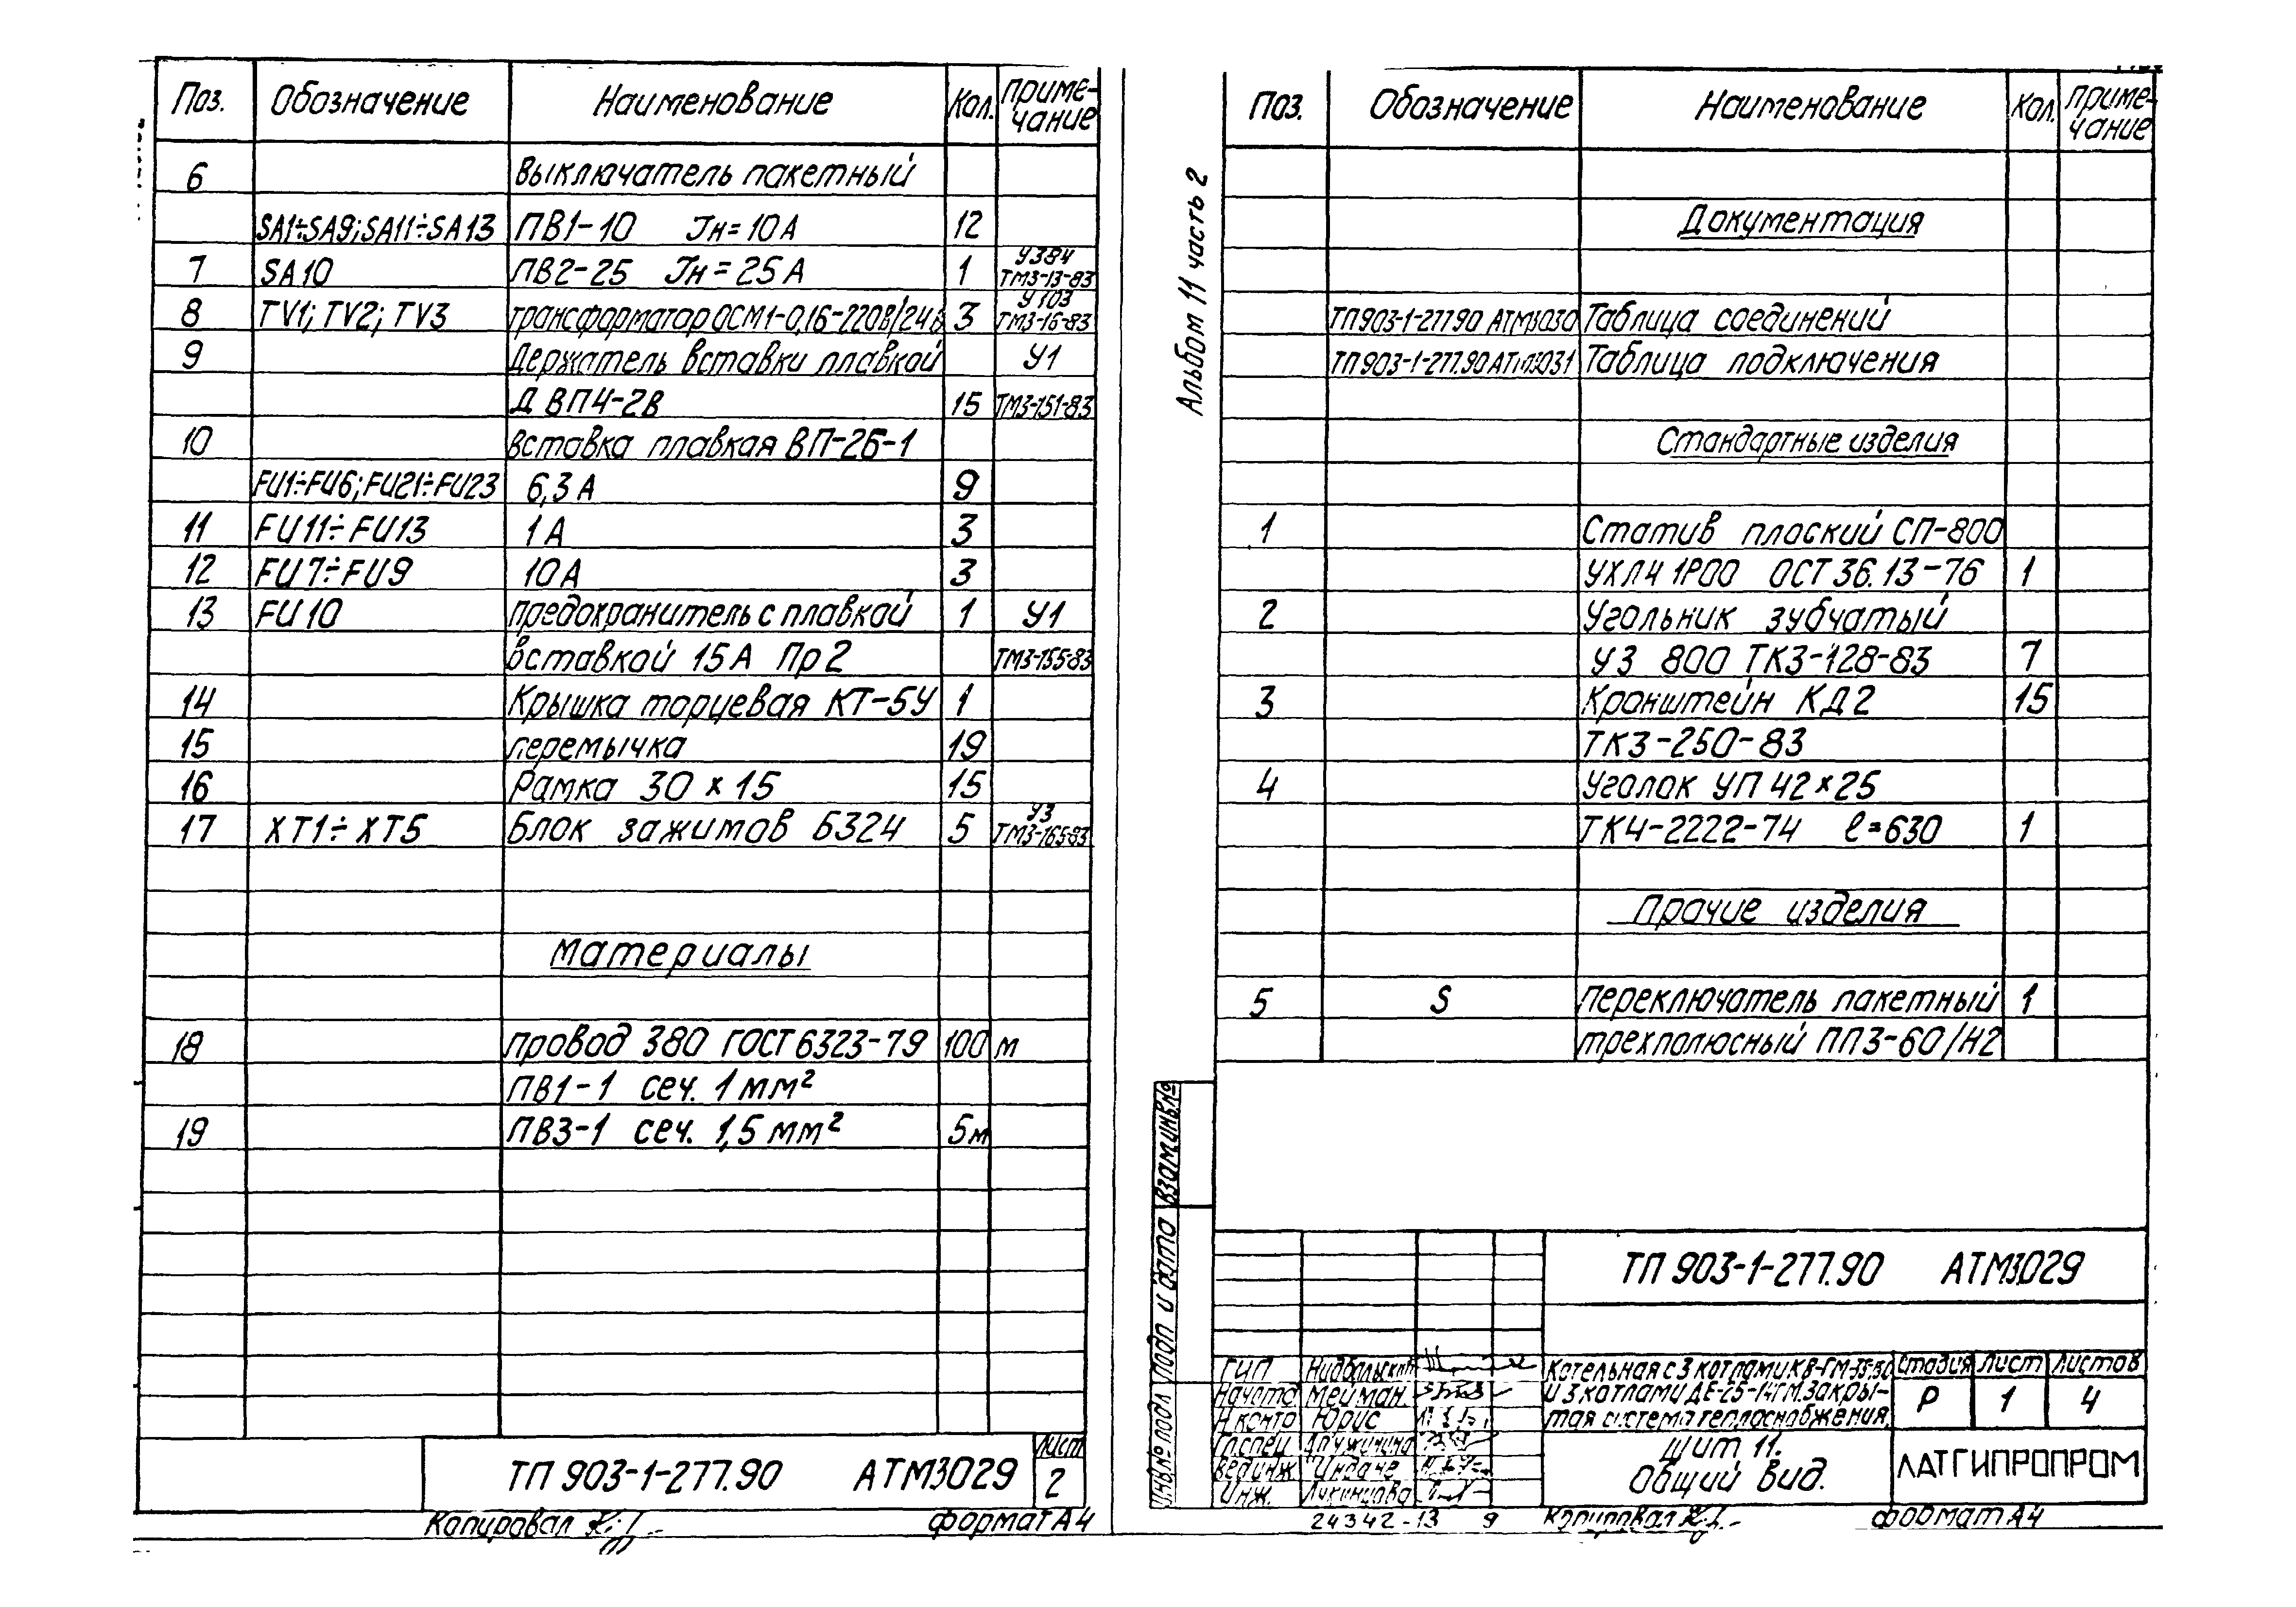 Поз. Обозначение Наименование Кол. Приме-
чание
6 Выключатель пакетный
SA1÷SA9; SA11÷SA13 ПВ1-10 Iн=10А 12
7 SA10 ПВ2-25 Iн=25А 1 У384 ТМ3-13-83
8 TV1; TV2; TV3 трансформатор ОСМ1-0,16-220В/24В 3 У103 ТМ3-16-83
9 Держатель вставки плавкой У1
ДВП4-2В 15 ТМ3-151-83
10 вставка плавкая ВП-2Б-1
FU1÷FU6; FU21÷FU23 6,3А 9
11 FU11÷FU13 1А 3
12 FU7÷FU9 10А 3
13 FU10 предохранитель с плавкой 1 У1
вставкой 15А Пр2 ТМ3-155-83
14 Крышка торцевая КТ-5У 1
15 перемычка 19
16 Рамка 30×15 15
17 XT1÷XT5 Блок зажимов Б324 5 У3 ТМ3-165-83
материалы
18 провод 380 ГОСТ 6323-79 100 м
ПВ1-1 сеч. 1мм²
19 ПВ3-1 сеч. 1,5мм² 5м
ТП 903-1-277.90 АТМ3029 Лист
2
Копировал формат А4
Альбом 11 часть 2
Поз. Обозначение Наименование Кол. Приме-
чание
Документация
ТП903-1-277.90 АТМ3030 Таблица соединений
ТП903-1-277.90 АТМ3031 Таблица подключения
Стандартные изделия
1 Статив плоский СП-800
УХЛ4 IP00 ОСТ 36.13-76 1
2 Угольник зубчатый
УЗ 800 ТК3-128-83 7
3 Кронштейн КД2 15
ТК3-250-83
4 Уголок УП 42×25
ТК4-2222-74 ℓ=630 1
Прочие изделия
5 S Переключатель пакетный 1
трехполюсный ПП3-60/Н2
Взам.инв.№
Подп и дата
Инв.№ подл
ТП 903-1-277.90 АТМ3029
ГИП
Начотд Мейман.
Н.контр Юрис
Гл.спец
Вед.инж
Инж.
Котельная с 3 котлами КВ-ГМ-35-150
и 3 котлами ДЕ-25-14ГМ. Закры-
тая система теплоснабжения.
Стадия Лист Листов
Р 1 4
Щит 11.
Общий вид.
ЛАТГИПРОПРОМ
24342-13 9 Копировал формат А4